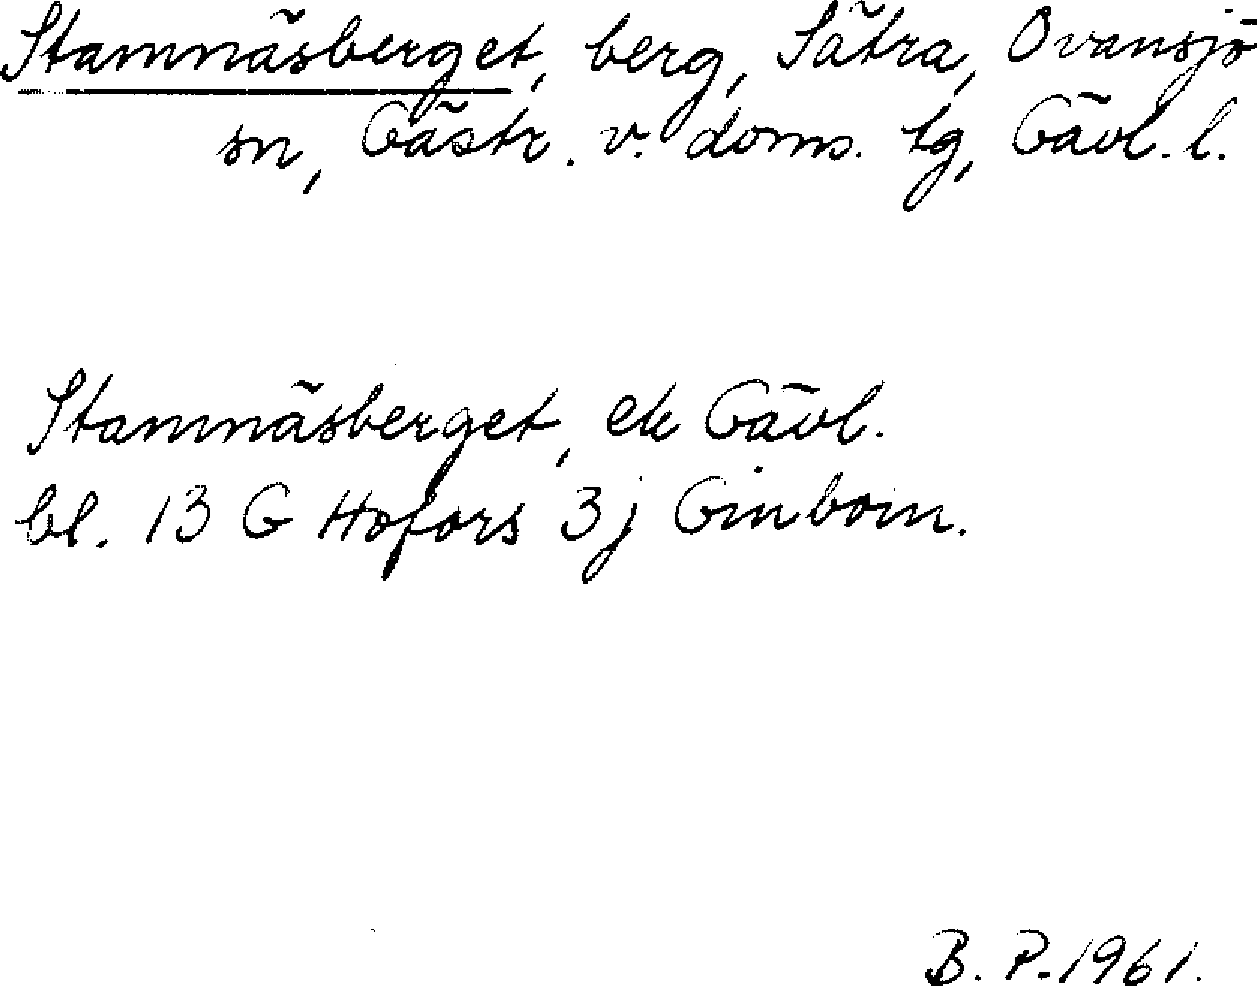 Stamnäsberget, berg, Sätra, Ovansjö
sn, Gästr. v. doms. tg, Gävl. l.
Stamnäsberget, ek Gävl.
bl. 13 G Hofors 3j Ginborn.
B. P. 1961.